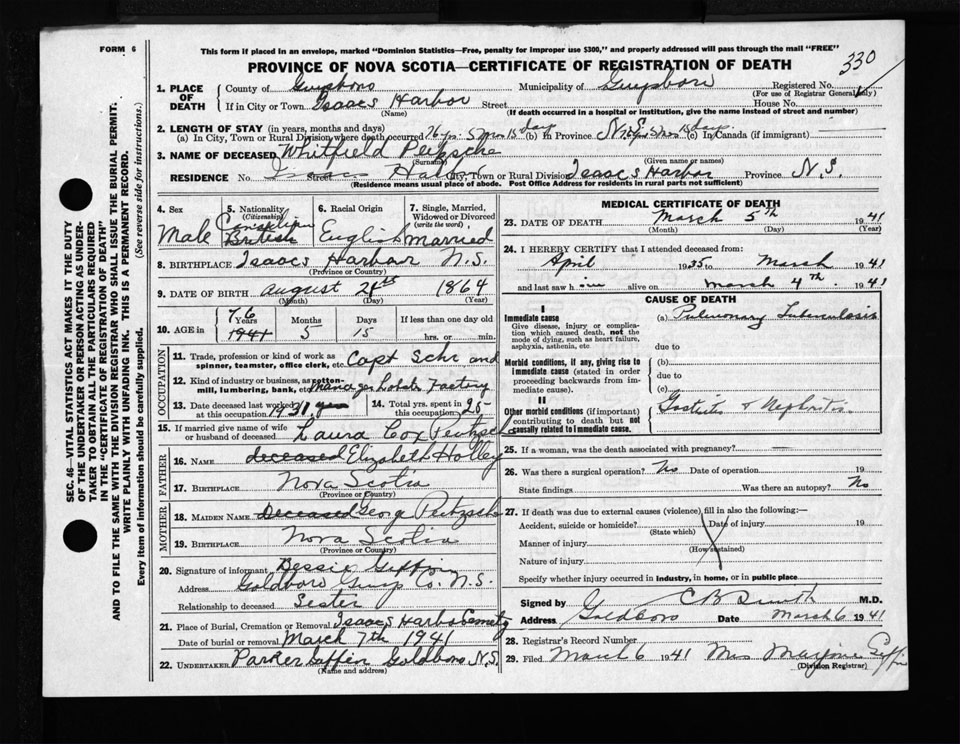 FORM 6
This form if placed in an envelope, marked "Dominion Statistics—Free, penalty for improper use $300," and properly addressed will pass through the mail "FREE"
330
PROVINCE OF NOVA SCOTIA—CERTIFICATE OF REGISTRATION OF DEATH
SEC. 46—VITAL STATISTICS ACT MAKES IT THE DUTY
OF THE UNDERTAKER OR PERSON ACTING AS UNDER-
TAKER TO OBTAIN ALL THE PARTICULARS REQUIRED
IN THE "CERTIFICATE OF REGISTRATION OF DEATH"
AND TO FILE THE SAME WITH THE DIVISION REGISTRAR WHO SHALL ISSUE THE BURIAL PERMIT.
WRITE PLAINLY WITH UNFADING INK. THIS IS A PERMANENT RECORD.
Every item of information should be carefully supplied. (See reverse side for instructions.)
1. PLACE OF DEATH
County of Guysboro Municipality of Guysboro Registered No.
(For use of Registrar General only)
If in City or Town Isaacs Harbor Street House No.
(Name) (If death occurred in a hospital or institution, give the name instead of street and number)
2. LENGTH OF STAY (in years, months and days)
(a) In City, Town or Rural Division where death occurred 76 yr. 5 mos 15 days (b) In Province N.S. 5 mos 15 days (c) In Canada (if immigrant)
3. NAME OF DECEASED Whitfield
(Surname) (Given name or names)
RESIDENCE No. Isaacs Street City, Town or Rural Division Isaacs Harbor Province N.S.
(Residence means usual place of abode. Post Office Address for residents in rural parts not sufficient)
4. Sex Male
5. Nationality (Citizenship) Canadian British
6. Racial Origin English
7. Single, Married, Widowed or Divorced (write the word) Married
8. BIRTHPLACE Isaacs Harbour N.S.
(Province or Country)
9. DATE OF BIRTH August 21st 1864
(Month) (Day) (Year)
10. AGE in 76 1941 Years Months 5 Days 15 If less than one day old hrs. or min.
OCCUPATION
11. Trade, profession or kind of work as spinner, teamster, office clerk, etc. Capt Schr and
12. Kind of industry or business, as cotton-mill, lumbering, bank, etc. Manager Lobster Factory
13. Date deceased last worked at this occupation 1931
14. Total yrs. spent in this occupation 25
15. If married give name of wife or husband of deceased Laura Cox
FATHER
16. NAME deceased Elizabeth Holley
17. BIRTHPLACE Nova Scotia
(Province or Country)
MOTHER
18. MAIDEN NAME Deceased
19. BIRTHPLACE Nova Scotia
(Province or Country)
20. Signature of informant Bessie Giffin
Address Goldboro Guys Co. N.S.
Relationship to deceased Sister
21. Place of Burial, Cremation or Removal Isaacs Harbor Cemetry
Date of burial or removal March 7th 1941
22. UNDERTAKER Parker Giffin Goldboro N.S.
(Name and address)
MEDICAL CERTIFICATE OF DEATH
23. DATE OF DEATH March 5th 1941
(Month) (Day) (Year)
24. I HEREBY CERTIFY that I attended deceased from:
April 1935 to March 1941
and last saw him alive on March 4th 1941
CAUSE OF DEATH
I
Immediate cause
Give disease, injury or complication which caused death, not the mode of dying, such as heart failure, asphyxia, asthenia, etc
(a) Pulmonary Tuberculosis
due to
Morbid conditions, if any, giving rise to immediate cause (stated in order proceeding backwards from immediate cause).
(b)
due to
(c)
II
Other morbid conditions (if important) contributing to death but not causally related to immediate cause.
Gastritis & Nephritis
25. If a woman, was the death associated with pregnancy?
26. Was there a surgical operation? No Date of operation 19
State findings Was there an autopsy? No
27. If death was due to external causes (violence) fill in also the following:—
Accident, suicide or homicide? Date of injury 19
(State which)
Manner of injury
(How sustained)
Nature of injury
Specify whether injury occurred in industry, in home, or in public place
Signed by C B Smith M.D.
Address Goldboro Date March 6 1941
28. Registrar's Record Number
29. Filed March 6 1941 Mrs Giffin
(Division Registrar)